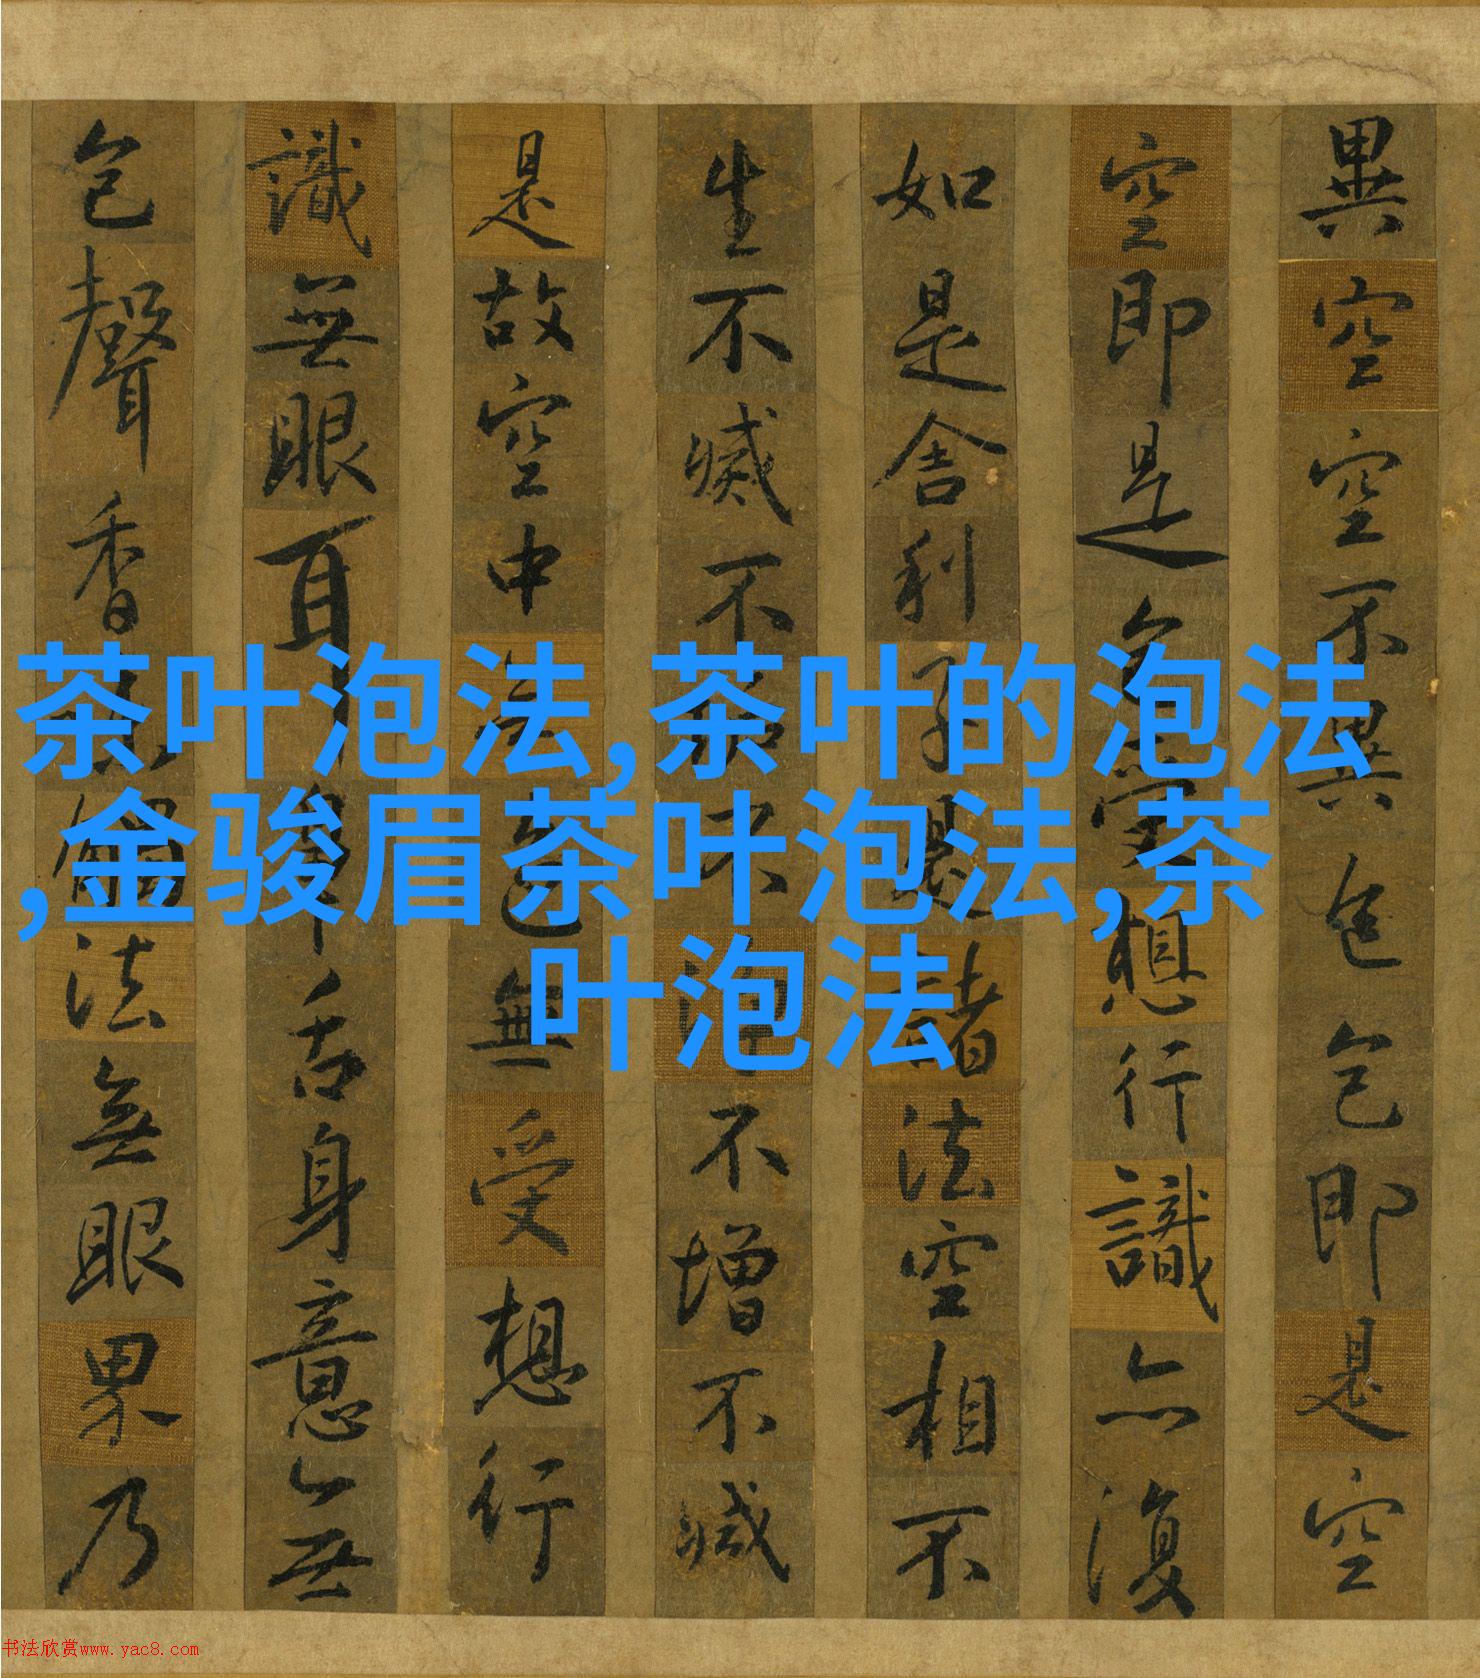 異空空不異色色即是空
空即是色受想行識亦復
如是舍利子是諸法空相不
生不滅不垢不淨不增不減
是故空中無色無受想行
識無眼耳鼻舌身意無
色聲香味觸法無眼界乃
茶叶泡法,茶叶的泡法
,金骏眉茶叶泡法,茶
叶泡法
书法欣赏www.yac8.com